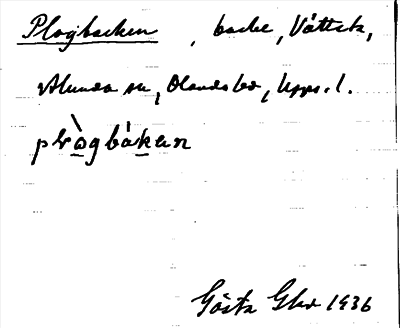 Plogbacken, backe, Våttsta,
Alunda sn, Olands hd, Upps. l.
plògbákan
Gösta Ghr 1936